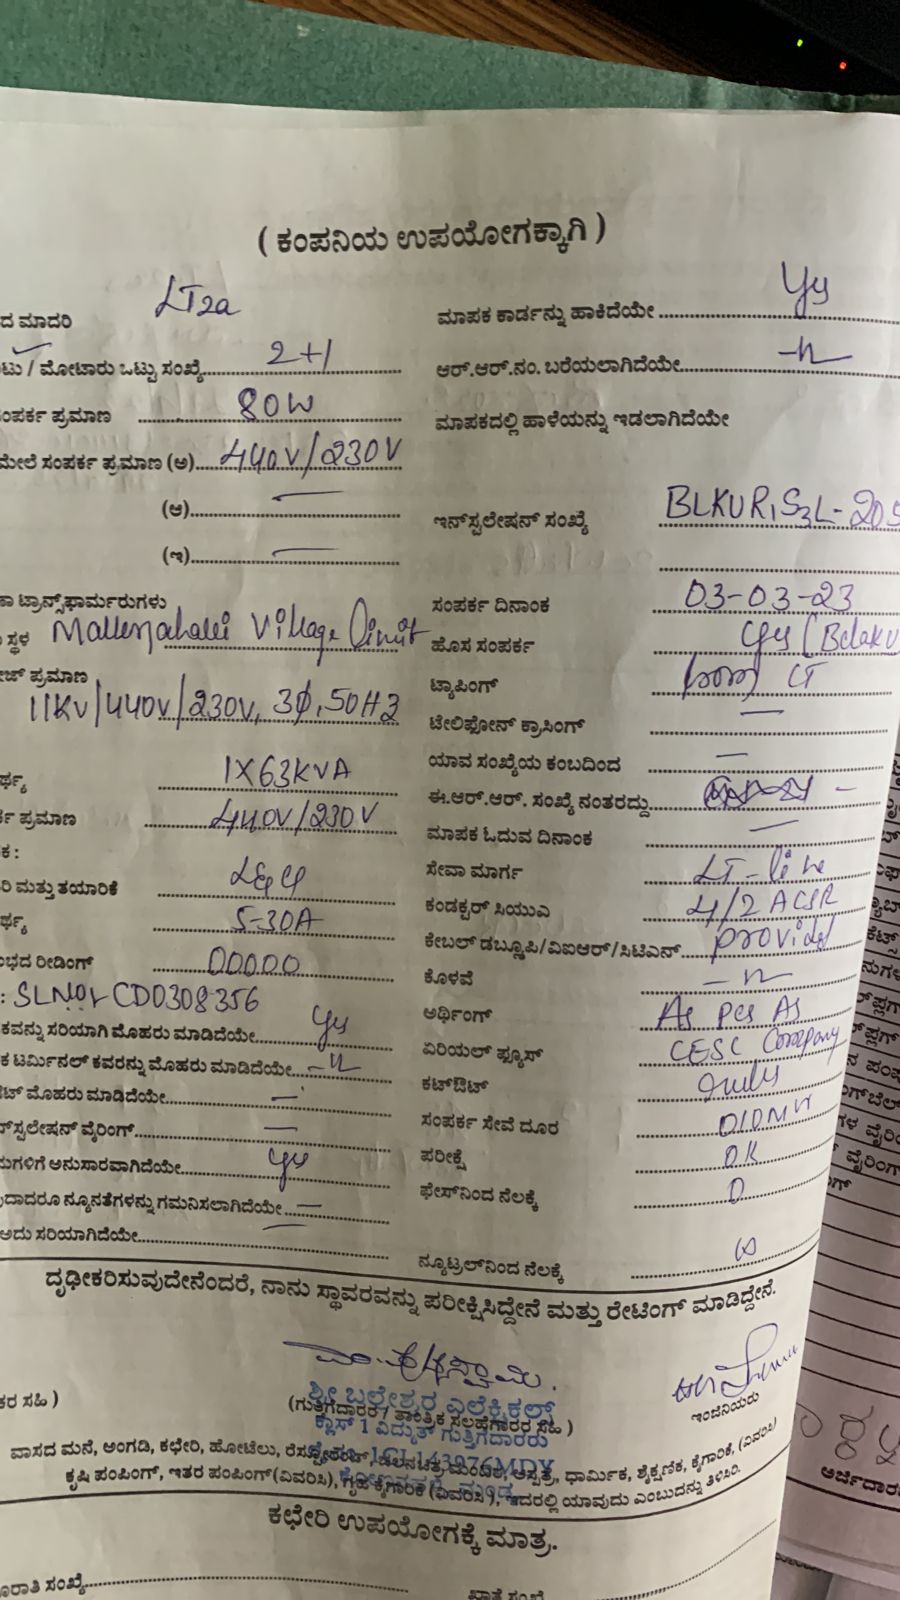 ( ಕಂಪನಿಯ ಉಪಯೋಗಕ್ಕಾಗಿ )
ದ ಮಾದರಿ LT2a
ಟು / ಮೋಟಾರು ಒಟ್ಟು ಸಂಖ್ಯೆ 2+1
ಸಂಪರ್ಕ ಪ್ರಮಾಣ 80W
ಮೇಲೆ ಸಂಪರ್ಕ ಪ್ರಮಾಣ (ಅ) 440V/230V
(ಆ) —
(ಇ) —
ಟ್ರಾನ್ಸ್‌ಫಾರ್ಮರುಗಳು
ಸ್ಥಳ Village Limit
ಪ್ರಮಾಣ
11KV/440V/230V, 3Ø, 50HZ
ರ್ಥ್ಯ 1X63KVA
ಪ್ರಮಾಣ 440V/230V
ಕ :
ರಿ ಮತ್ತು ತಯಾರಿಕೆ L&G
ರ್ಥ್ಯ 5-30A
ಭದ ರೀಡಿಂಗ್ 00000
: SLNO: CD0308356
ಕವನ್ನು ಸರಿಯಾಗಿ ಮೊಹರು ಮಾಡಿದೆಯೇ Yes
ಕ ಟರ್ಮಿನಲ್ ಕವರನ್ನು ಮೊಹರು ಮಾಡಿದೆಯೇ —"—
ಮೊಹರು ಮಾಡಿದೆಯೇ —
ನ್‌ಸ್ಟಲೇಷನ್ ವೈರಿಂಗ್ —
ಮಗಳಿಗೆ ಅನುಸಾರವಾಗಿದೆಯೇ Yes
ದಾದರೂ ನ್ಯೂನತೆಗಳನ್ನು ಗಮನಿಸಲಾಗಿದೆಯೇ —
ಅದು ಸರಿಯಾಗಿದೆಯೇ —
ಮಾಪಕ ಕಾರ್ಡನ್ನು ಹಾಕಿದೆಯೇ Yes
ಆರ್.ಆರ್.ನಂ. ಬರೆಯಲಾಗಿದೆಯೇ —"—
ಮಾಪಕದಲ್ಲಿ ಹಾಳೆಯನ್ನು ಇಡಲಾಗಿದೆಯೇ
ಇನ್‌ಸ್ಟಲೇಷನ್ ಸಂಖ್ಯೆ
ಸಂಪರ್ಕ ದಿನಾಂಕ 03-03-23
ಹೊಸ ಸಂಪರ್ಕ Yes (Belaku
ಟ್ಯಾಪಿಂಗ್ from LT
ಟೇಲಿಫೋನ್ ಕ್ರಾಸಿಂಗ್ —
ಯಾವ ಸಂಖ್ಯೆಯ ಕಂಬದಿಂದ —
ಈ.ಆರ್.ಆರ್. ಸಂಖ್ಯೆ ನಂತರದ್ದು —
ಮಾಪಕ ಓದುವ ದಿನಾಂಕ —
ಸೇವಾ ಮಾರ್ಗ LT-line
ಕಂಡಕ್ಟರ್ ಸಿಯುವಿ 4/2 ACSR
ಕೇಬಲ್ ಡಬ್ಲೂಪಿ/ವಿಐಆರ್/ಸಿಟಿಎನ್ provided
ಕೊಳವೆ —"—
ಅರ್ಥಿಂಗ್ As per As
ಏರಿಯಲ್ ಫ್ಯೂಸ್ CESC Company
ಕಟ್‌ಔಟ್ rules
ಸಂಪರ್ಕ ಸೇವೆ ದೂರ
ಪರೀಕ್ಷೆ OK
ಫೇಸ್‌ನಿಂದ ನೆಲಕ್ಕೆ 0
ನ್ಯೂಟ್ರಲ್‌ನಿಂದ ನೆಲಕ್ಕೆ
ದೃಢೀಕರಿಸುವುದೇನೆಂದರೆ, ನಾನು ಸ್ಥಾವರವನ್ನು ಪರೀಕ್ಷಿಸಿದ್ದೇನೆ ಮತ್ತು ರೇಟಿಂಗ್ ಮಾಡಿದ್ದೇನೆ.
ಶ್ರೀ ಬಲೇಶ್ವರ ಎಲೆಕ್ಟ್ರಿಕಲ್ಸ್
ಕರ ಸಹಿ )
(ಗುತ್ತಿಗೆದಾರರ / ತಾಂತ್ರಿಕ ಸಲಹೆಗಾರರ ಸಹಿ )
ಇಂಜಿನಿಯರು
ಕ್ಲಾಸ್ 1 ವಿದ್ಯುತ್ ಗುತ್ತಿಗೆದಾರರು
ವಾಸದ ಮನೆ, ಅಂಗಡಿ, ಕಛೇರಿ, ಹೋಟೆಲು, ರೆಸ್ಟೋರೆಂಟ್, ಆಸ್ಪತ್ರೆ, ಧಾರ್ಮಿಕ, ಶೈಕ್ಷಣಿಕ, ಕೈಗಾರಿಕೆ, (ವಿವರಿಸಿ)
ಕೃಷಿ ಪಂಪಿಂಗ್, ಇತರ ಪಂಪಿಂಗ್(ವಿವರಿಸಿ), ಗೃಹ ಕೈಗಾರಿಕೆ (ವಿವರಿಸಿ ), ಇದರಲ್ಲಿ ಯಾವುದು ಎಂಬುದನ್ನು ತಿಳಿಸಿರಿ.
ಕಛೇರಿ ಉಪಯೋಗಕ್ಕೆ ಮಾತ್ರ.
ಸಂಖ್ಯೆ
ಖಾತೆ ಸಂಖ್ಯೆ
ಅರ್ಜಿದಾರ